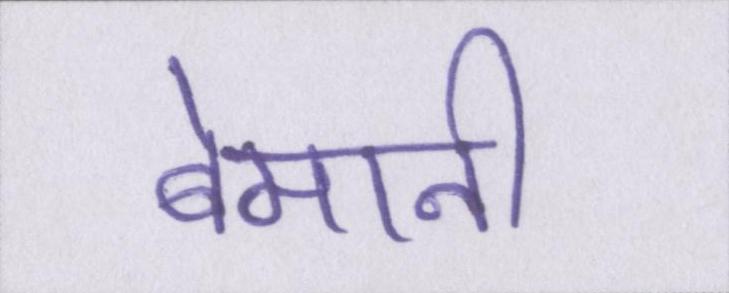 बेमानी